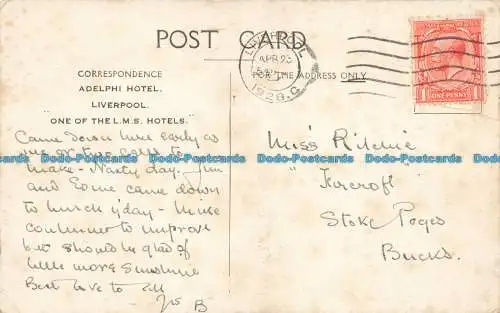 POST CARD
LIVERPOOL
APR 23
1928
CORRESPONDENCE
FOR THE ADDRESS ONLY
ADELPHI HOTEL.
LIVERPOOL.
"ONE OF THE L.M.S. HOTELS."
ONE PENNY
Came down here early as
one or two calls to
make - Nasty day. Jim
and Esme came down
to lunch y'day - Mine
continues to improve
but should be glad of
little more sunshine
Best love to all
Yrs B
Miss Ritchie
Stoke Poges
Bucks.
Dodo-Postcards Dodo-Postcards Dodo-Postcards Dodo-Postcards